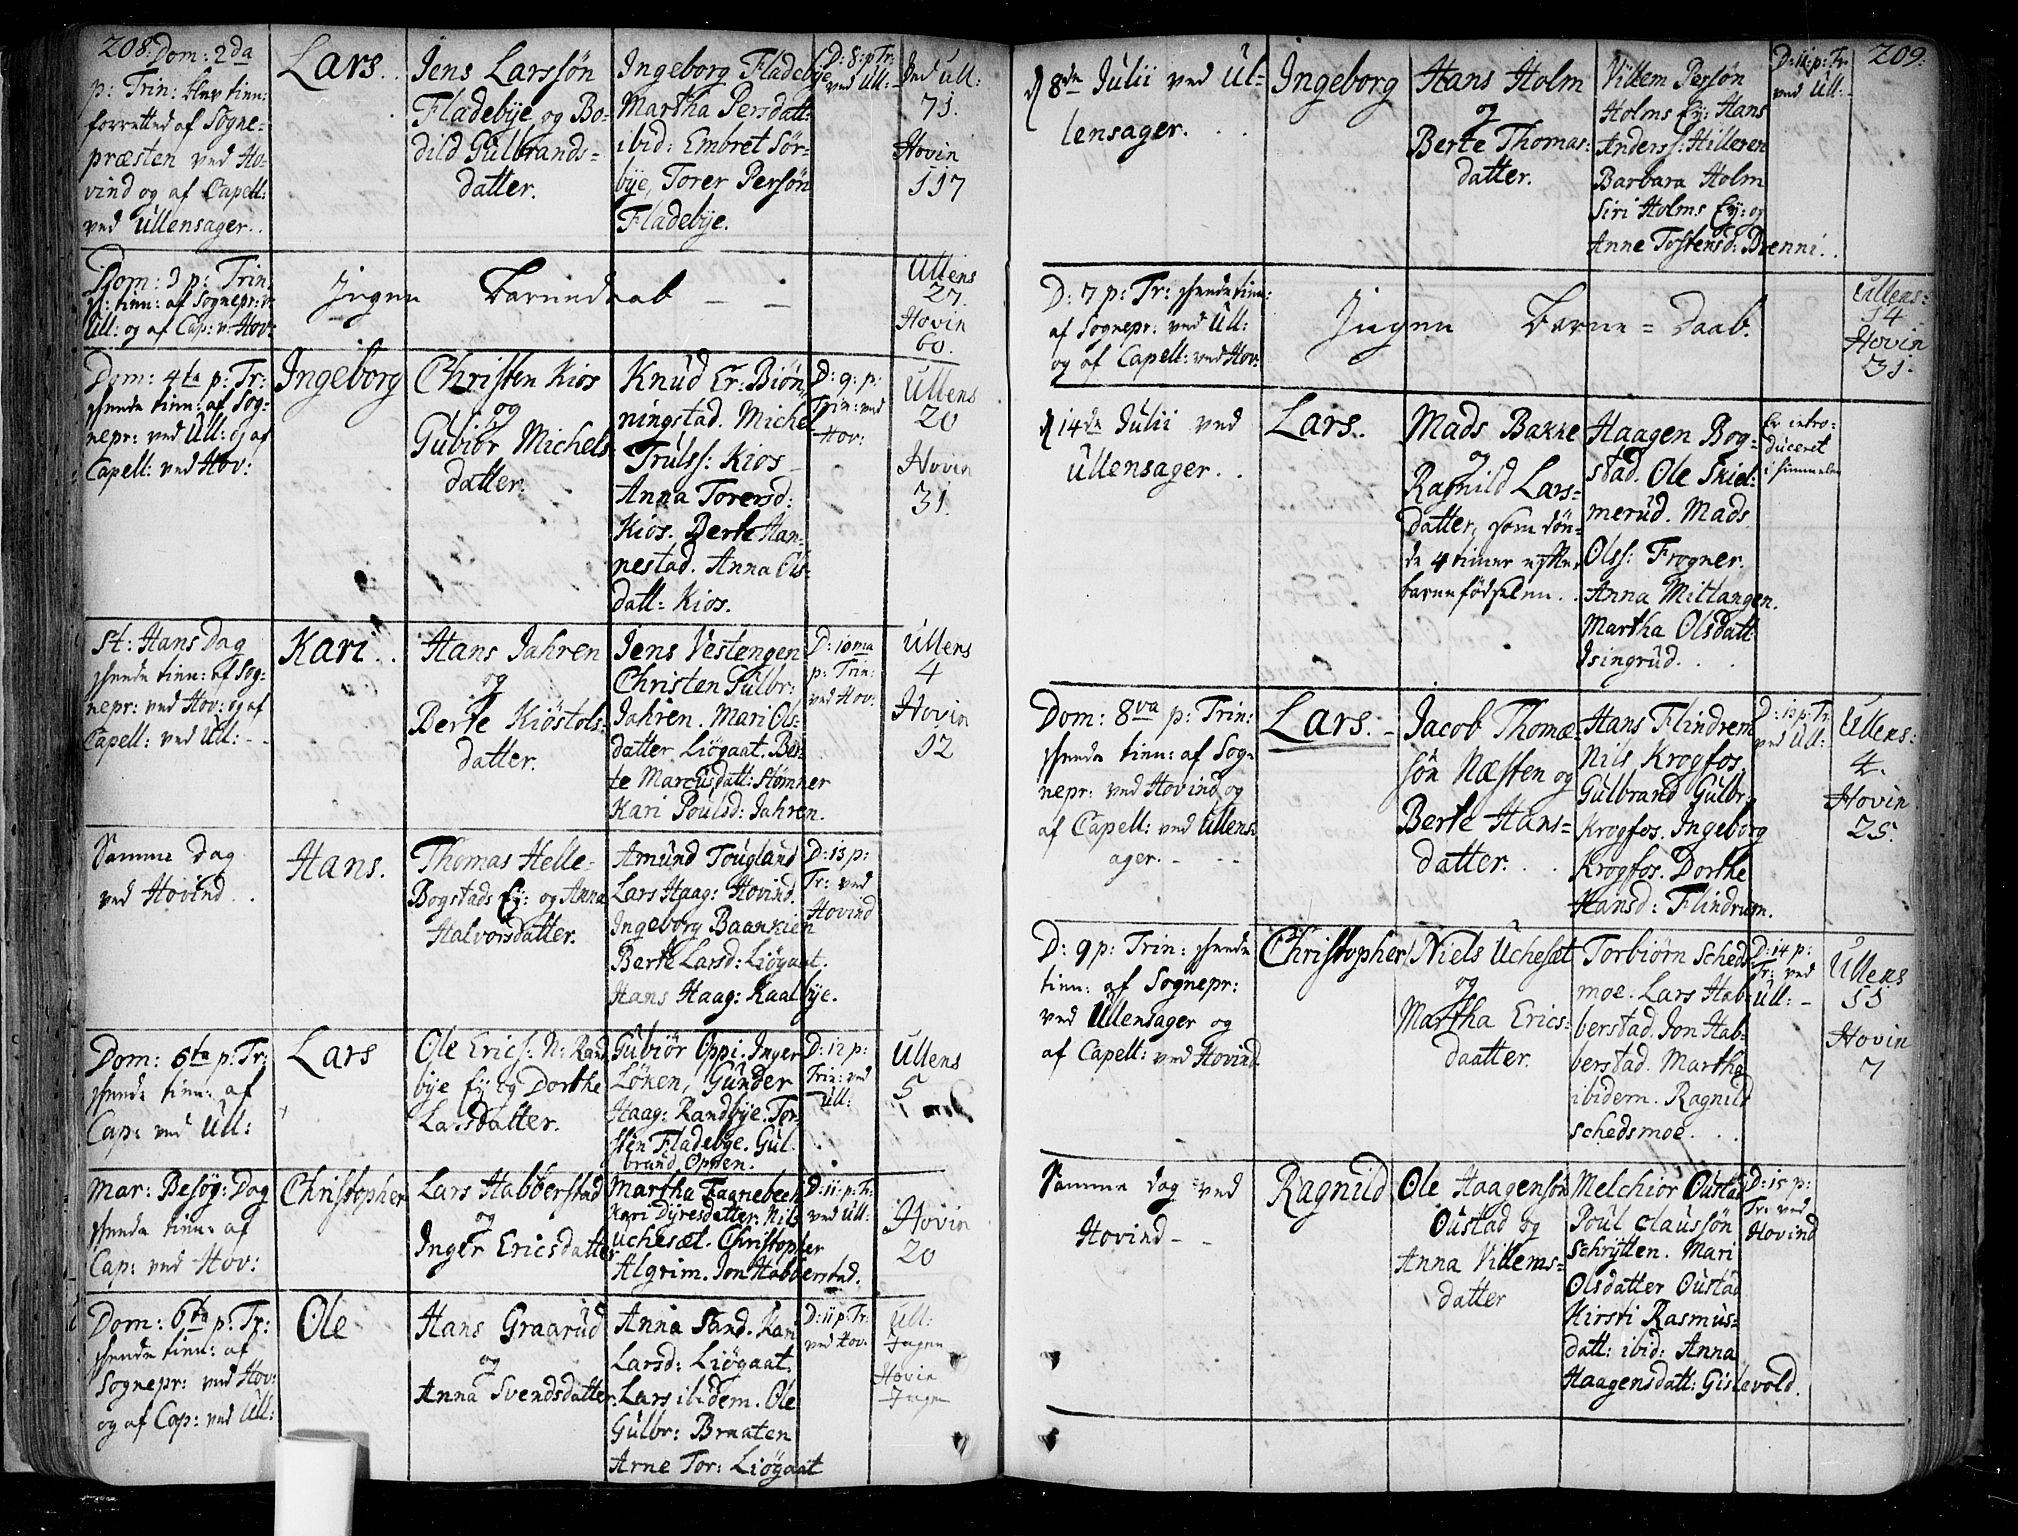 208. Dom: 2da
p: Trin: tien:
forretted af Sogne-
præsten ved Ho-
vind og af Capell:
ved Ullensager.
Lars.
Jens Larssøn
Fladebÿe og Bo-
dild Gulbrands-
datter.
Ingeborg Fladebÿe
Martha Persdatt:
ibid: Embret Sør-
bÿe, Torer Persøn
Fladebÿe.
D: 8: p Tr:
ved Ull:
Ull:
71.
Hovin
117
Dom: 3 p: Trin:
tien: af Sognepr: v:
Ull: og af Cap: v: Hov:
Ingen Barnedaab - -
Ullens
27.
Hovin
60.
Dom: 4ta p: Tr:
skeede tien: af Sog-
nepr: ved Ull: og af
Capell: ved Hov:
Ingeborg
Christen Kios
og
Gubiør Michels
datter.
Knud Er: Biøn-
ningstad. Michel
Trulss: Kios
Anna Torersd:
Kios. Berte Han-
nestad. Anna Ols-
datt: Kios.
D: 9: p:
Trin: ved
Hov:
Ullens
20
Hovin
31.
St: Hans Dag
skeede tien: af Sog-
nepr: ved Hov: og af
Capell: ved Ull: -
Kari.
Hans Jahren
og
Berte Kiøstols-
datter.
Jens Vestengen
Christen Gulbr:
Jahren. Mari Ols-
datter Liøgaat. Ber-
te Marcusdatt: Stomner
Kari Poulsd: Jahren.
D: 10ma
p: Trin:
ved Hov:
Ullens
4
Hovin
12
Samme Dag
ved Hovind.
Hans.
Thomas Helle-
Bogstads Eÿ: og Anna
Halvorsdatter.
Amund Tougland
Lars Haag: Hovind.
Ingeborg Baankien
Berte Larsd: Liøgaat.
Hans Haag: Kaalbÿe.
D: 13 p:
Tr: ved
Hovind
Dom: 5ta p: Tr:
skeede tien: af
Cap: ved Ull:
Lars
Ole Erics: N: Rand-
bÿe Eÿ og Dorthe
Larsdatter.
Gubiør Oppi. Inger
Løken, Gunder
Haag: Randbÿe. Tor-
sten Fladebÿe. Gul-
brand Opsen.
D: 12 p:
Trin: ved
Ull:
Ullens
5
Mar: Besøg: Dag
skeede tien: af
Cap: ved Hov:
Christopher
Lars Habberstad
og
Inger Ericsdatter
Martha Fagnebech
Kari Dÿresdatter. Nils
Uchesæt. Christopher
Algrim. Jon Habberstad.
D: 11: p: Tr:
ved Ull:
Hovin
20
Dom: 6ta p: Tr:
skeede tien: af
Sognepr: ved Hov:
og af Cap: ved Ull:
Ole
Hans Graarud
og
Anna Svendsdatter
Anna Sand. Kari
Larsd: Liøgaat.
Lars ibidem. Ole
Gulbr: Braaten
Arne Tor: Liøgaat
D: 11 p: Tr:
ved Hov:
Ull:
Ingen
Hovin
Ingen
209.
8de Julii ved Ul-
lensager.
Ingeborg
Hans Holm
og
Berte Thomas-
datter.
Villem Persøn
Holms Eÿ: Hans
Anderss: Hilleren
Barbara Holm
Siri Holms Eÿ: og
Anne Tostensd: Brenni.
D: 11: p: Tr:
ved Ull:
D: 7 p: Tr: skeede tien:
af Sognepr: ved Ull:
og af Capell: ved Hov:
Ingen Barne = Daab.
Ullens:
14
Hovin
31.
14de Julii ved
Ullensager.
Lars.
Mads Bakke
og
Ragnild Lars-
datter, som døn-
de 4 timer efter
barnefødselen.
Haagen Bog-
stad. Ole Skiel-
merud. Mads
Olss: Frogner.
Anna Mittangen.
Martha Olsdatt:
Isingrud.
Er intro-
duceret
i himmelen
Dom: 8va p: Trin:
skeede tien: af Sog-
nepr: ved Hovind og
af Capell: ved Ullens-
ager. - -
Lars. -
Jacob Thomæ-
søn Næsten og
Berte Hans-
datter.
Hans Flindrem
Nils Krogfos.
Gulbrand Gulbr:
Krogfos. Ingeborg
Krogfos. Dorthe
Hansd: Flindrum.
D: 13 p: Tr:
ved Ull:
Ullens:
4.
Hovin
25.
D: 9 p: Trin: skeede
tien: af Sognepr:
ved Ullensager og
af Capell: ved Hovind
Christopher
Niels Uchesæt
og
Martha Erics-
daatter.
Torbiørn Scheds-
moe. Lars Hab-
berstad. Jon Hab-
berstad. Martha
ibidem. Ragnild
Schedsmoe.
D: 14 p:
Tr: ved
Ull: -
Ullens
11
Hovin
7
Samme dag ved
Hovind - -
Ragnild
Ole Haagensøn
Oustad og
Anna Villems-
datter
Melchior Oustad
Poul Claussøn
Schrÿtten. Mari
Olsdatter Oustad
Kirsti Rasmus-
datt: ibid: Anna
Haagensdatt: Gislevold.
D: 15 p:
Tr: ved
Hovind